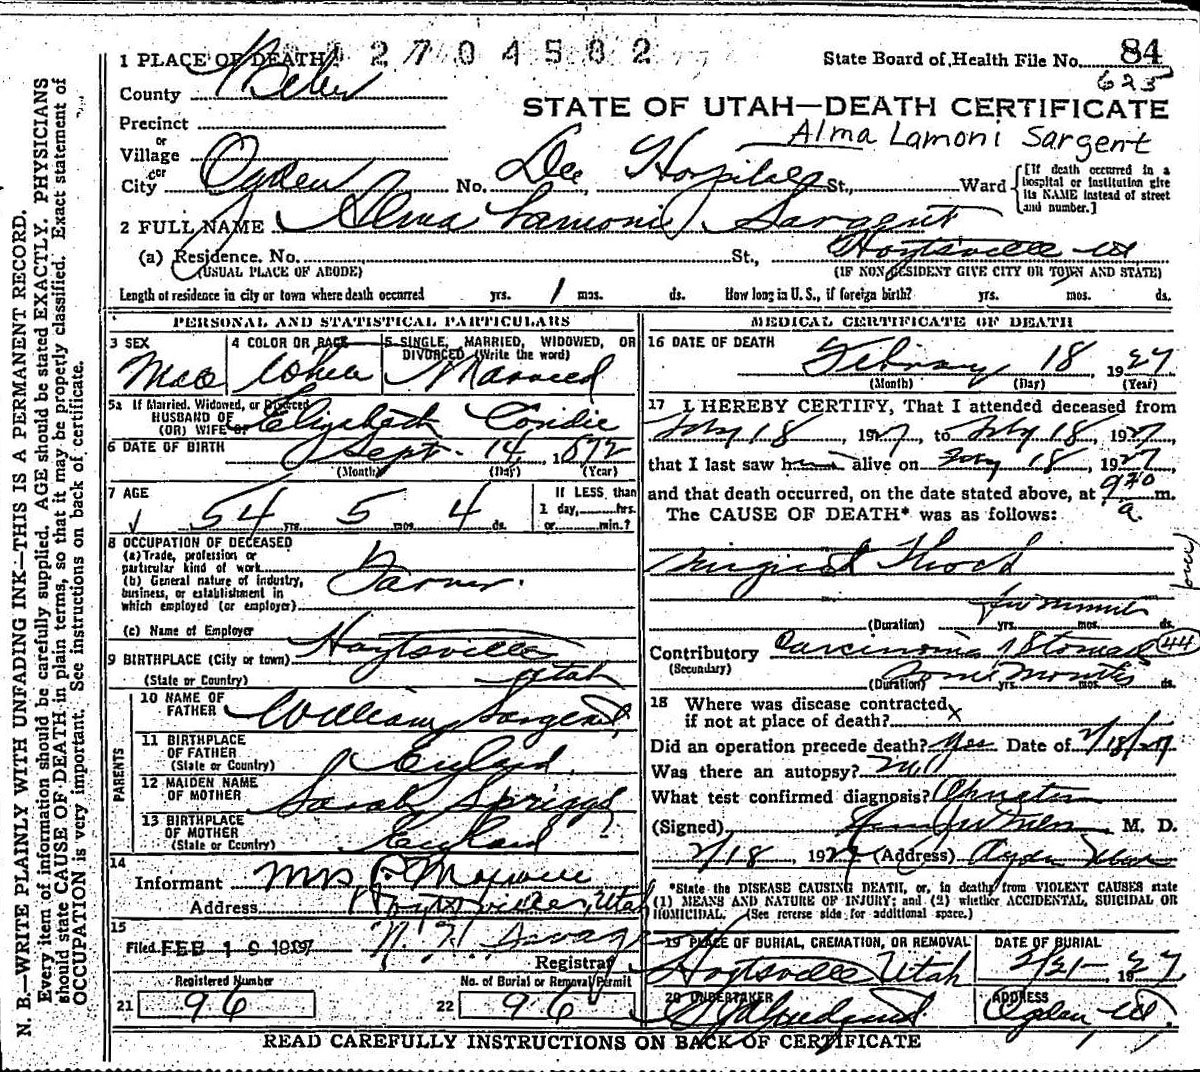 N. B.—WRITE PLAINLY WITH UNFADING INK—THIS IS A PERMANENT RECORD.
Every item of information should be carefully supplied. AGE should be stated EXACTLY. PHYSICIANS
should state CAUSE OF DEATH in plain terms, so that it may be properly classified. Exact statement of
OCCUPATION is very important. See instructions on back of certificate.
2704502
1 PLACE OF DEATH
State Board of Health File No. 84
625
County Weber
STATE OF UTAH—DEATH CERTIFICATE
Precinct
Alma Lamoni Sargent
or
Village
or
City Ogden No. Dee Hospital St., Ward
[If death occurred in a hospital or institution give its NAME instead of street and number.]
2 FULL NAME Alma Lamoni Sargent
(a) Residence. No. St., Hoytsville Ut
(USUAL PLACE OF ABODE) (IF NON RESIDENT GIVE CITY OR TOWN AND STATE)
Length of residence in city or town where death occurred yrs. 1 mos. ds. How long in U. S., if foreign birth? yrs. mos. ds.
PERSONAL AND STATISTICAL PARTICULARS
3 SEX Male
4 COLOR OR RACE White
5 SINGLE, MARRIED, WIDOWED, OR DIVORCED (Write the word) Married
5a If Married, Widowed, or Divorced
HUSBAND OF
(OR) WIFE OF Elizabeth
6 DATE OF BIRTH Sept. 14 1872
(Month) (Day) (Year)
7 AGE 54 yrs. 5 mos. 4 ds.
If LESS than
1 day, hrs.
or min.?
8 OCCUPATION OF DECEASED
(a) Trade, profession or
particular kind of work
(b) General nature of industry,
business, or establishment in
which employed (or employer)
Farmer.
(c) Name of Employer
9 BIRTHPLACE (City or town) Hoytsville
(State or Country) Utah
PARENTS
10 NAME OF
FATHER William Sargent
11 BIRTHPLACE
OF FATHER
(State or Country) England
12 MAIDEN NAME
OF MOTHER Sarah Spriggs
13 BIRTHPLACE
OF MOTHER
(State or Country) England
14
Informant Mrs
Address Hoytsville, Utah
15
Filed FEB 19
Registrar
Registered Number
21 96
No. of Burial or Removal Permit
22 96
MEDICAL CERTIFICATE OF DEATH
16 DATE OF DEATH
February 18 1927
(Month) (Day) (Year)
17 I HEREBY CERTIFY, That I attended deceased from
Feby 18, 1927, to Feby 18, 1927,
that I last saw him alive on Feby 18, 1927,
and that death occurred, on the date stated above, at 930 a. m.
The CAUSE OF DEATH* was as follows:
Surgical Shock
(Duration) yrs. mos. ds.
Contributory Carcinoma Stomach 44
(Secondary)
(Duration) some months yrs. mos. ds.
18 Where was disease contracted
if not at place of death? x
Did an operation precede death? Yes Date of 2/18/27
Was there an autopsy? no
What test confirmed diagnosis? Operation
(Signed) M. D.
2/18, 1927 (Address) Ogden Utah
*State the DISEASE CAUSING DEATH, or, in deaths from VIOLENT CAUSES state
(1) MEANS AND NATURE OF INJURY; and (2) whether ACCIDENTAL, SUICIDAL OR
HOMICIDAL. (See reverse side for additional space.)
19 PLACE OF BURIAL, CREMATION, OR REMOVAL
Hoytsville Utah
DATE OF BURIAL
2/21- 1927
20 UNDERTAKER
ADDRESS
Ogden Ut.
READ CAREFULLY INSTRUCTIONS ON BACK OF CERTIFICATE